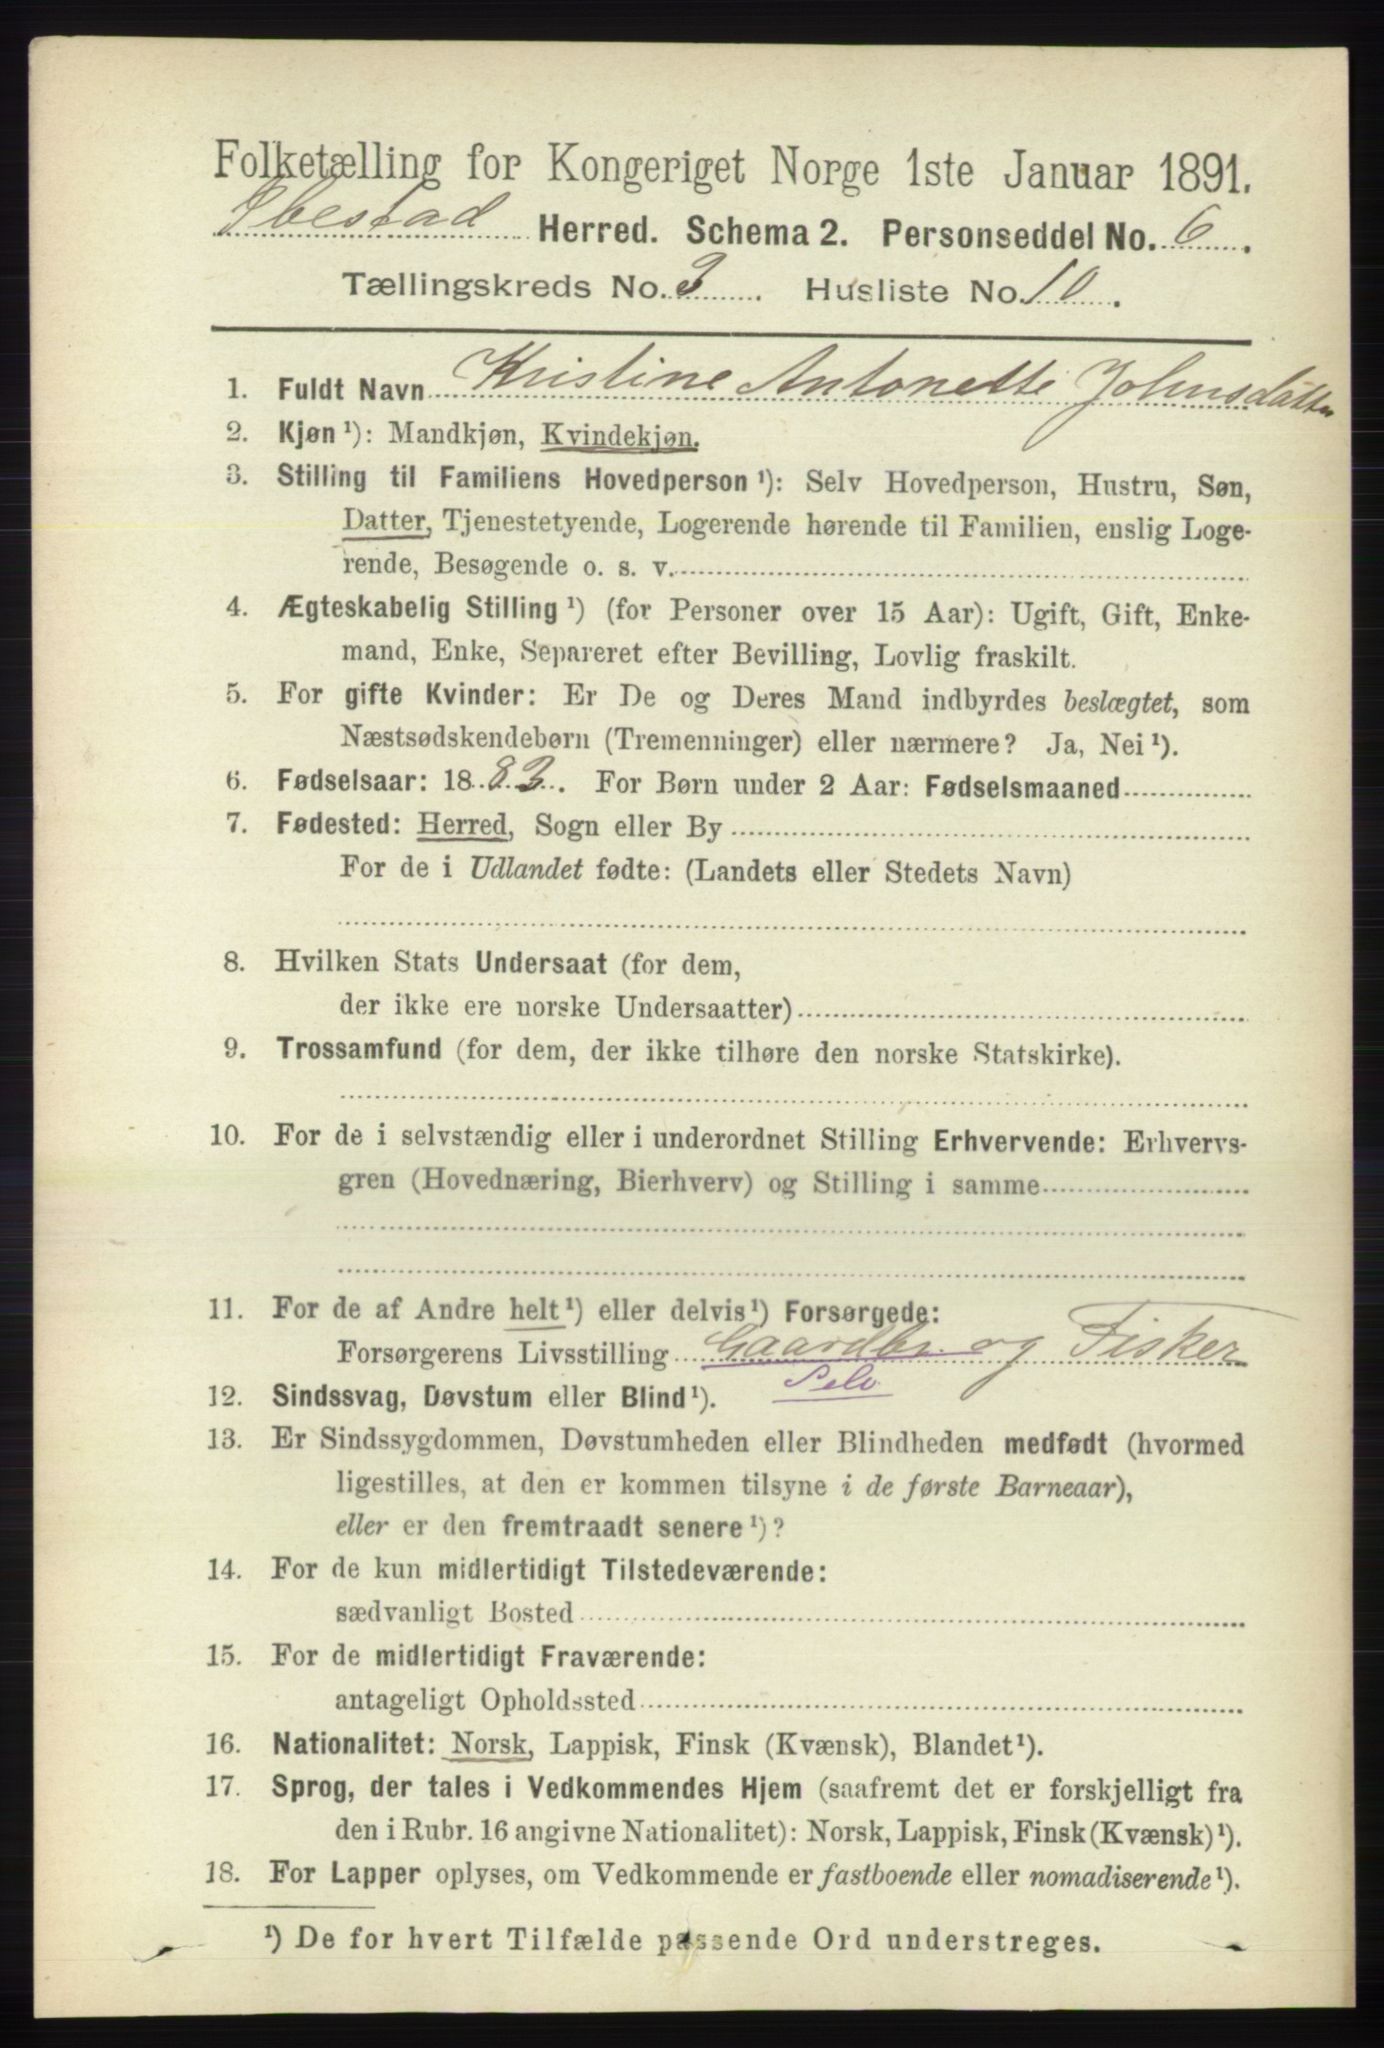 Folketælling for Kongeriget Norge 1ste Januar 1891.
Ibestad Herred. Schema 2. Personseddel No. 6.
Tællingskreds No. 3. Husliste No. 10.
1. Fuldt Navn Kristine Antonette Johnsdatter
2. Kjøn ¹): Mandkjøn, Kvindekjøn.
3. Stilling til Familiens Hovedperson ¹): Selv Hovedperson, Hustru, Søn,
Datter, Tjenestetyende, Logerende hørende til Familien, enslig Loge-
rende, Besøgende o. s. v.
4. Ægteskabelig Stilling ¹) (for Personer over 15 Aar): Ugift, Gift, Enke-
mand, Enke, Separeret efter Bevilling, Lovlig fraskilt.
5. For gifte Kvinder: Er De og Deres Mand indbyrdes beslægtet, som
Næstsødskendebørn (Tremenninger) eller nærmere? Ja, Nei ¹).
6. Fødselsaar: 1883. For Børn under 2 Aar: Fødselsmaaned
7. Fødested: Herred, Sogn eller By
For de i Udlandet fødte: (Landets eller Stedets Navn)
8. Hvilken Stats Undersaat (for dem,
der ikke ere norske Undersaatter)
9. Trossamfund (for dem, der ikke tilhøre den norske Statskirke).
10. For de i selvstændig eller i underordnet Stilling Erhvervende: Erhvervs-
gren (Hovednæring, Bierhverv) og Stilling i samme
11. For de af Andre helt ¹) eller delvis ¹) Forsørgede:
Forsørgerens Livsstilling Gaardbr. og Fisker
Selv
12. Sindssvag, Døvstum eller Blind ¹).
13. Er Sindssygdommen, Døvstumheden eller Blindheden medfødt (hvormed
ligestilles, at den er kommen tilsyne i de første Barneaar),
eller er den fremtraadt senere ¹)?
14. For de kun midlertidigt Tilstedeværende:
sædvanligt Bosted
15. For de midlertidigt Fraværende:
antageligt Opholdssted
16. Nationalitet: Norsk, Lappisk, Finsk (Kvænsk), Blandet ¹).
17. Sprog, der tales i Vedkommendes Hjem (saafremt det er forskjelligt fra
den i Rubr. 16 angivne Nationalitet): Norsk, Lappisk, Finsk (Kvænsk) ¹).
18. For Lapper oplyses, om Vedkommende er fastboende eller nomadiserende ¹).
¹) De for hvert Tilfælde passende Ord understreges.